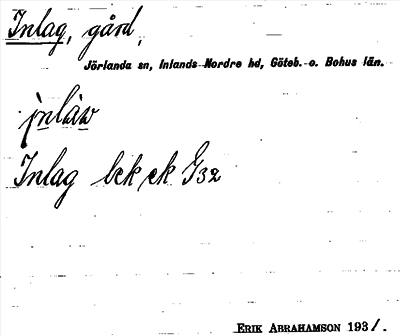 Inlag, gård,
Jörlanda sn, Inlands Nordre hd, Göteb.- o. Bohus län.
i̇nlàw
Inlag bck ek G32
ERIK ABRAHAMSON 1931.